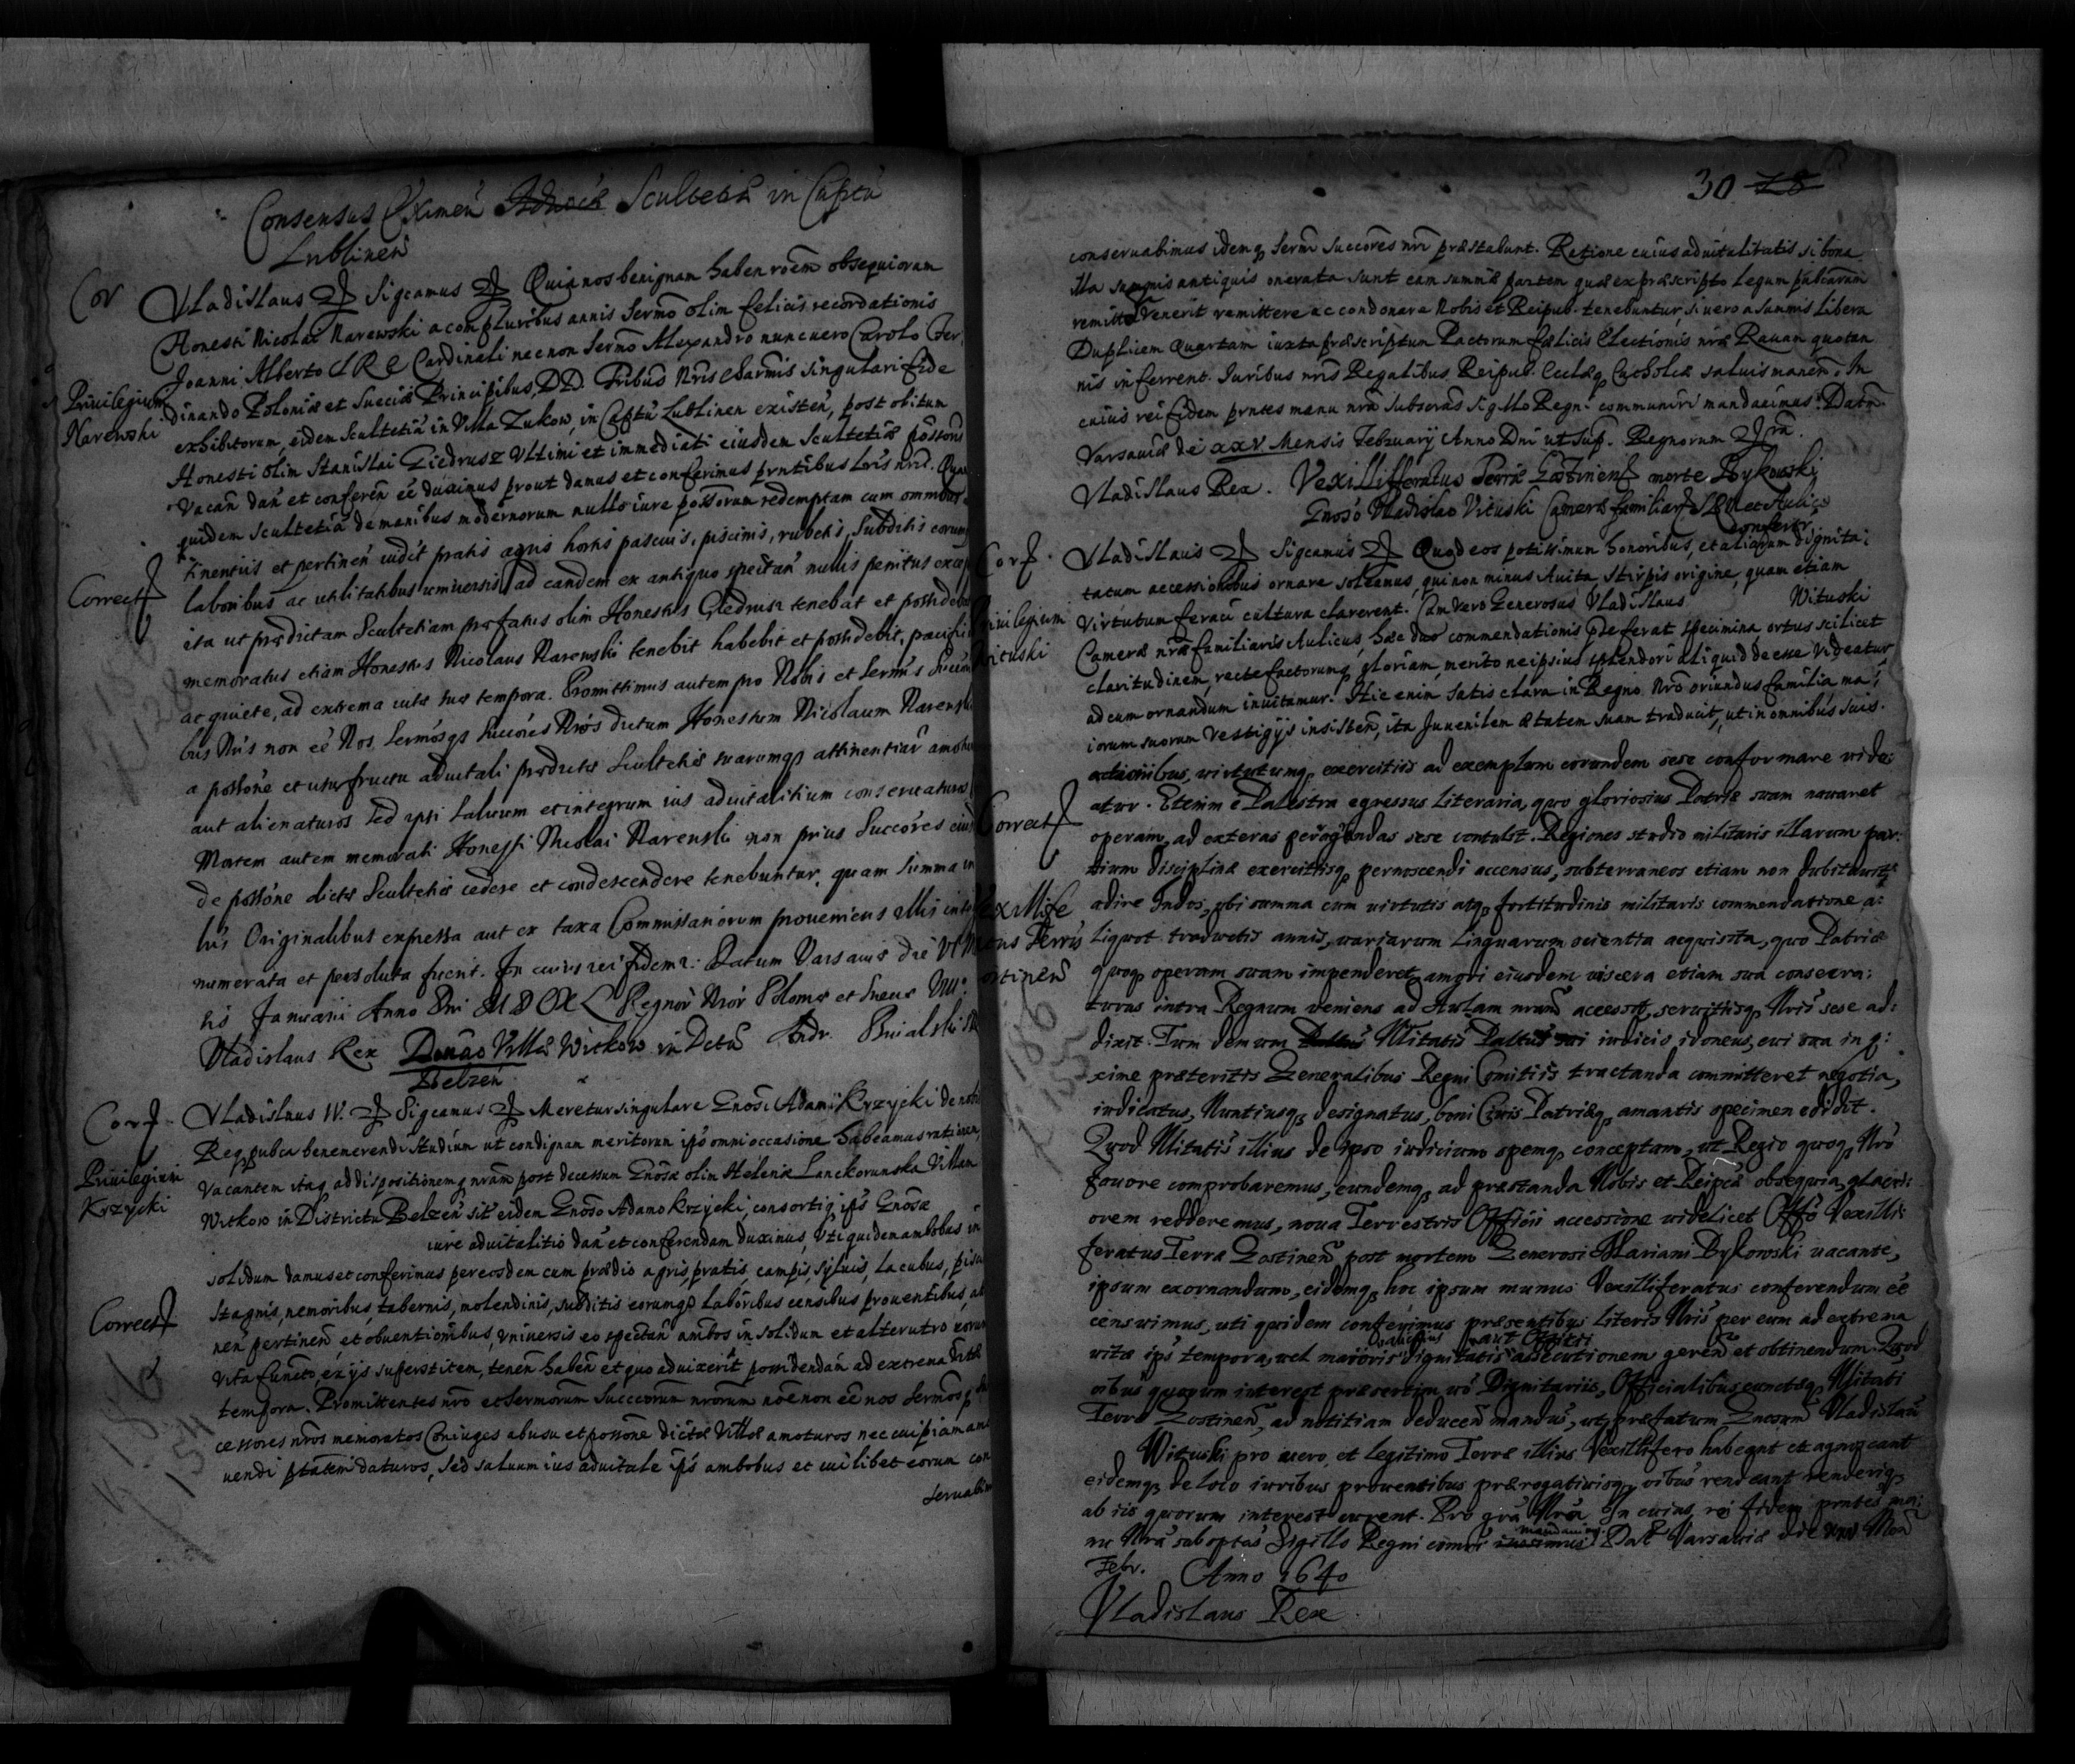 Consensus Eximen Scultetia in Capitu
Lublinen
Cor
Vladislaus Sigcamus Quia nos benignam haben roem obsequiorum
Honesti Nicolai Narewski a compluribus annis Sermo olim felicis recordationis
Joanni Alberto S R E Cardinali necnon Sermo Alexandro nunc uero Carolo Fer
Priuilegium
Narewski
dinando Poloniæ et Sueciæ Principibus, DD. Fribus Nris Charmis singulari fide
exhibitorum, eidem Scultetiã in Villa Zukow, in Captu Lublinen existeñ, post obitum
Honesti olim Stanislai Giedrusz Vltimi et immediati eiusdem Scultetiæ possoris
Vacañ dañ et conferen eẽ duximus prout damus et conferimus pntibus Lris nris. Quam
quidem Scultetiã de manibus modernorum nullo iure possorum redemptam cum omnibus
tinentiis et pertineñ uidet pratis agris hortis pascuis, piscinis, rubetis, subditis eorumq
Correct
laboribus ac utilitatibus uniuersis ad eandem ex antiquo spectañ nullis penitus excep
ita ut prædictam Scultetiam præfatus olim Honestus Giedrusz tenebat et possidebat
memoratus etiam Honestus Nicolaus Narewski tenebit habebit et possidebit, pacifice
ac quiete, ad extrema uitæ suæ tempora. Promittimus autem pro Nobis et Sermis Succori
bus Nris non eẽ Nos Sermosqꝫ Succores Nros dictum Honestum Nicolaum Narewski
a possone et usufructu aduitali prædictæ Scultetiæ suarumqꝫ attinentiar amoturos
aut alienaturos sed ipsi saluum et integrum ius aduitalitium conseruaturos
Mortem autem memorati Honesti Nicolai Narewski non prius Succores eius
de possone dictæ Scultetiæ cedere et condescendere tenebuntur, quam summa in
bus Originalibus expressa aut ex taxa Commissariorum proueniens illis integre
numerata et persoluta fuerit. In cuius rei fidem: Datum Varsauiæ die
is Januarii Anno Dni MDCXL Regnor Nror Poloniæ et Sueciæ
Vladislaus Rex Donao Villæ Witkow in Dctu
Belzeñ
Cor
Vladislaus IV. Sigcamus Meretur singulare Gnosi Adami Krzycki de nobis
Repubca benemerendi studium ut condignam meritorum ips omni occasione habeamus rationem,
Priuilegium
Krzycki
Vacantem itaq ad dispositionemq nram post decessum Gnosæ olim Helenæ Lanckorunska Villam
Witkow in Districtu Belzeñ sit eidem Gnoso Adamo Krzycki, consortiq ips Gnosæ
iure aduitalitio dañ et conferendam duximus, Vti quidem ambobus in
solidum damus et conferimus per eosdem cum prædio agris, pratis, campis, syluis, lacubus, pisci
stagnis, nemoribus, tabernis, molendinis, subditis eorumqꝫ laboribus censibus prouentibus, at
Correct
neñ pertineñ et obuentionibus, Vniuersis eo spectañ ambos in solidum et alterutro eorum
vita functo, ex ijs superstitem, teneñ habeñ et quo aduixerit possidendam ad extrema vitæ
tempora. Promittentes nro et Sermorum Succorum nrorum noẽ non eẽ nos Sermosq
cessores nros memoratos Coniuges ab usu et possone dictæ Villæ amoturos nec cuipiam
uendi ptatem daturos, sed saluum ius aduitale ips ambobus et cuilibet eorum con
seruabim
30 28
conseruabimus idemqꝫ Sermi Succores nri præstabunt. Ratione cuius aduitalitatis si bona
illa summis antiquis onerata sunt eam summæ partem quæ ex præscripto legum publicarum
remitti Venerit remittere ac condonare Nobis et Reipub. tenebuntur, si uero a summis libera
Duplicem Quartam iuxta præscriptum Pactorum fælicis Electionis nræ Rauam quotan
nis inferrent. Iuribus nris Regalibus Reipub. Eccleqꝫ Catholicæ saluis maneñ. In
cuius rei fidem pntes manu nra subscras Sigillo Regni communiri mandauimus. Datñ
Varsauiæ die XXV Mensis February Anno Dni ut sup. Regnorum
Vladislaus Rex. Vexilliferatus Terræ Gostinens morte Dykowski
Gnoso Vladislao Vituski Cameræ familiari S R M et Aulico
confertr
Cor
Vladislaus Sigcamus Quod eos potissimum honoribus, et aliarum dignita
tacum accessionibus ornare soleamus, qui non minus Auita stirpis origine, quam etiam
Priuilegium
Wituski
Virtutum feraci cultura clarerent. Cum Vero Generosus Vladislaus Wituski
Cameræ nræ familiaris Aulicus, hæc duo commendationis præferat specimina ortus scilicet
claritudinem, recte factorumqꝫ gloriam, merito ne ipsius splendori aliquid deesse Videatur
ad eum ornandum inuitamur. Hic enim satis clara in Regno Nro oriundus familia ma
iorum suorum Vestigijs insisteñ, ita Juuenilem ætatem suam traducit, ut in omnibus suis
actionibus, uirtutumqꝫ exercitiis ad exemplum eorundem sese conformare uide
atur. Etenim e Palestra egressus Literaria, quo gloriosius Patriæ suam nauaret
Correct
operam, ad exteras peragrandas sese contulit. Regiones studio militaris illarum par
tium disciplinæ exercitiisqꝫ pernoscendi accensus, subterraneos etiam non dubitauit
Vexillife
adire Indos, ubi summa cum uirtutis atqꝫ fortitudinis militaris commendatione a
ratus Terræ
liquot traductis annis, uariarum linguarum scientia acquisita, quo Patriæ
Gostinens
quoqꝫ operam suam impenderet, amori eiusdem uiscera etiam sua consecra
turus intra Regnum veniens ad Aulam nram accessit, seruitiisqꝫ Nris sese ad
dixit. Tum demum Nlitatis Palts sui iudicio idoneus, cui sua in q
xime præteritis Generalibus Regni Comitiis tractanda committeret negotia,
iudicatus, Nuntiusqꝫ designatus, boni Ciuis Patriæqꝫ amantis specimen edidit.
Quod Nlitatis illius de ipso iudicium spemqꝫ conceptam, ut Regio quoqꝫ Nro
fauore comprobaremus, eundemqꝫ ad præstanda Nobis et Reipcæ obsequia, glacri
orem redderemus, noua Terrestris Officii accessione uidelicet Offo Vexilli
feratus Terra Gostineñ post mortem Generosi Mariani Dykowski uacante,
ipsum exornandum, eidemqꝫ hoc ipsum munus Vexilliferatus conferendum eẽ
censuimus, uti quidem conferimus præsentibus literis Nris per eum ad extrema
uitæ ips tempora, uel maioris dignitatis aut Officii assecutionem gereñ et obtinendum. Quod
oibus quorum interest præsertim uo Dignitariis, Officialibus cunctæqꝫ Nlitati
Terræ Gostineñ, ad notitiam deduceñ mandus, ut præfatum Gnosum Vladislaum
Wituski pro uero, et legitimo Terræ illius Vexillifero habeant et agnoscant
eidemqꝫ de loco iuribus prouentibus prærogatiuisqꝫ oibus rendeant renderiqꝫ
ab iis quorum interest current. Pro gra Nra. In cuius rei fidem pntes ma
nu Nra subsptas Sigillo Regni comri mandauimus. Dat Varsauiæ die Meñ
Febr. Anno 1640
Vladislaus Rex.